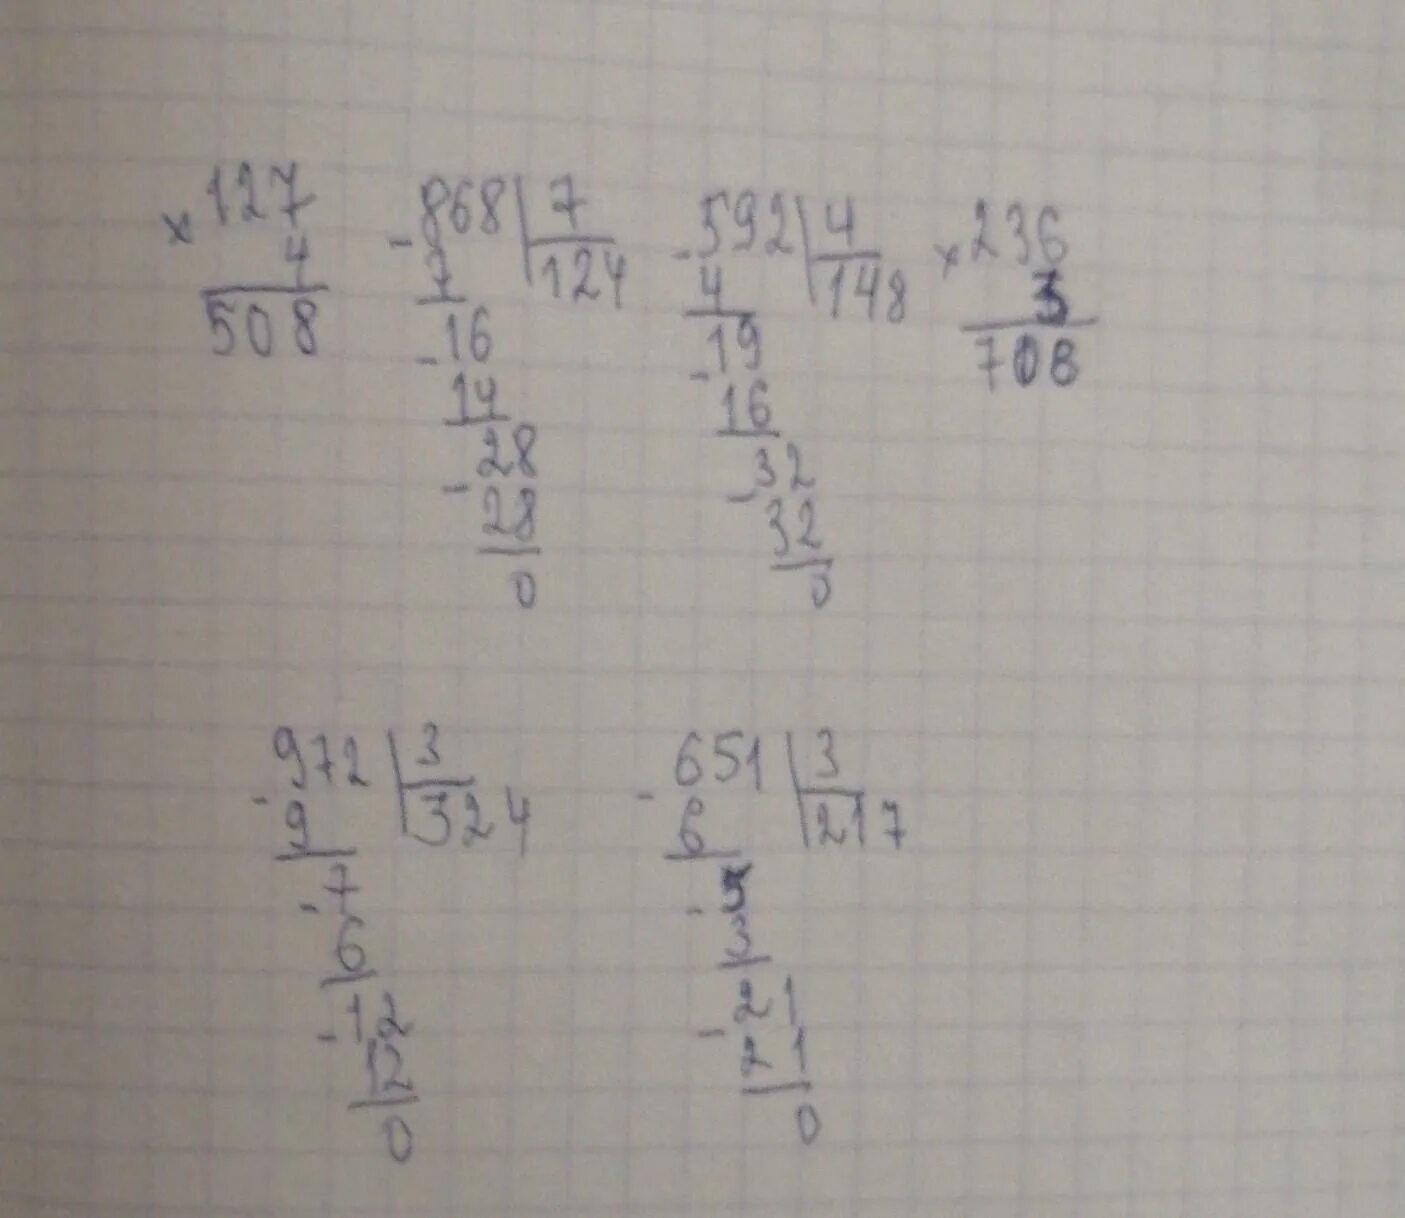 127
× 4
508
- 868 | 7
7 124
- 16
14
- 28
28
0
- 592 | 4
4 148
- 19
16
- 32
32
0
× 236
3
708
- 972 | 3
9 324
- 7
6
- 12
12
0
- 651 | 3
6 217
- 5
3
- 21
21
0